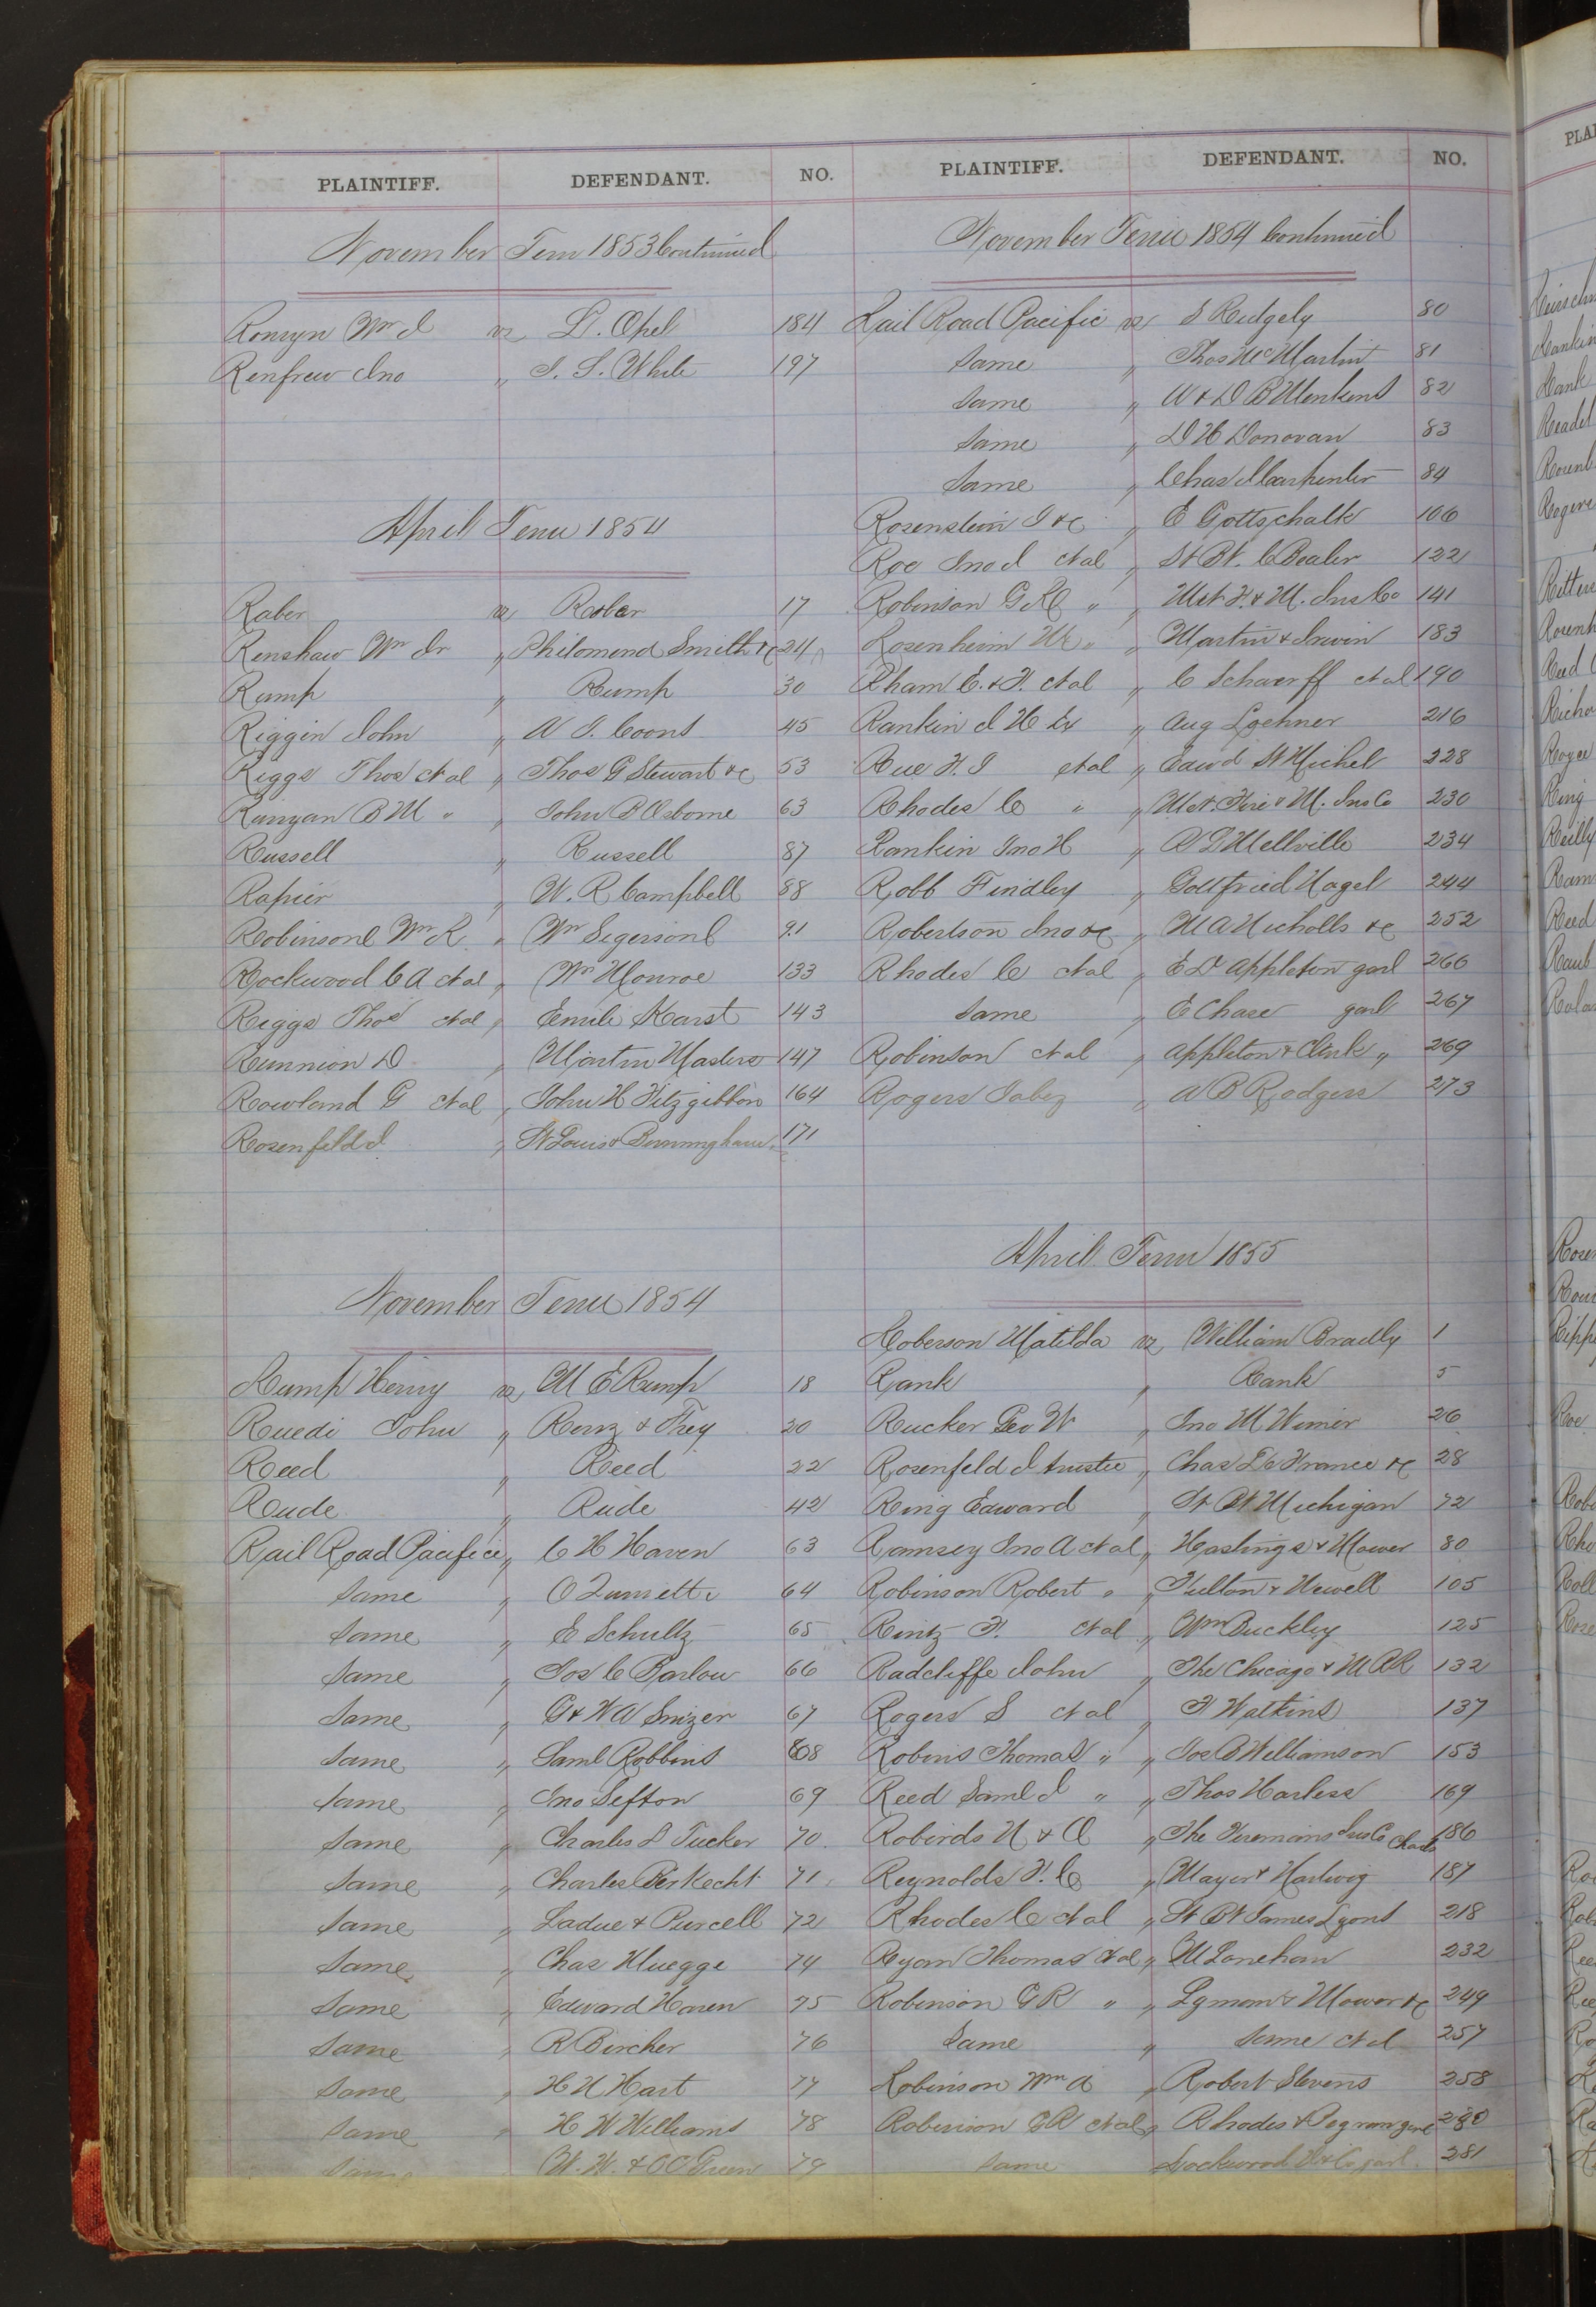 PLAINTIFF. DEFENDANT. NO.
November Term 1853 Continued
Romyn Wm J vs L. Opel 184
Renfrew Jno " J. S. White 197
April Term 1854
Raber vs Raber 17
Renshaw Wm Jr " Philomend Smith &c 24
Rump " Rump 30
Riggin John " A J. Coons 45
Riggs Thos et al " Thos G Stewart &c 53
Runyan B M " " John P Osborne 63
Russell " Russell 87
Rapier " W. R Campbell 88
Robinson Wm R. " Wm Segerson 91
Rockwood C A et al " Wm Monroe 133
Riggs Thos et al " Emile Karst 143
Runnion D " Martin Masters 147
Rowland G et al " John H Fitzgibbon 164
Rosenfeld J " St Louis & 171
November Term 1854
Rump Henry vs M E Rump 18
Ruedi John " Renz & Frey 20
Reed " Reed 22
Rude " Rude 42
Rail Road Pacific " C H Haven 63
Same " O 64
Same " E Schultz 65
Same " Jos C Barlow 66
Same " G & W A Smizer 67
Same " Saml Robbins 68
Same " Jno Sefton 69
Same " Charles S Tucker 70
Same " Charles Berkecht 71
Same " Ladue & Purcell 72
Same " Chas Kluegge 74
Same " Edward Haren 75
Same " R Bircher 76
Same " H N Hart 77
Same " H W Williams 78
Same W. W. & O O Green 79
PLAINTIFF. DEFENDANT. NO.
November Term 1854 Continued
Rail Road Pacific vs S Rutgely 80
Same " Thos McMartin 81
Same " W & D B Menkens 82
Same " D H Donovan 83
Same " Chas M Carpenter 84
Rosenstein J &c " E Gottschalk 106
Roe Jno J et al " St Bt. C Bealer 122
Robinson G R " " Mct F. & M. Ins Co 141
Rosenheim M " " Martin & Irwin 183
Rham E. & F. et al " C Schaerff et al 190
Rankin J H Ex " Aug Lochner 216
Rue F. J et al " Edwd St Michel 228
Rhodes C " " Mct. Fire & M. Ins Co 230
Rankin Jno H " A D Mellville 234
Robb Findley " Gottfried Nagel 244
Robertson Jno &c " M A Nicholls &c 252
Rhodes C et al " E D Appleton garl 266
Same " E Chase garl 267
Robinson et al " Appleton & Clark " 269
Rogers Jabez " A B Rodgers 273
April Term 1855
Roberson Matilda vs William Bradly 1
Rank " Rank 5
Rucker Geo W " Jno M Wimer 26
Rosenfeld J trustee " Chas De France &c 28
Ring Edward " St Bt Michigan 72
Ramsey Jno A et al " Hastings & Mower 80
Robinson Robert " " Fulton & Newell 105
Rintz F. et al " Wm Buckley 125
Radcliffe John " The Chicago & M RR 132
Rogers S et al " F Watkins 137
Robins Thomas " " Jos B Williamson 153
Reed Saml J " " Thos Harless 169
Robirds N & A " The Firemans Ins Co 186
Reynolds F. C " Mayer & Hartwig 187
Rhodes C et al " St Bt James Lyons 218
Ryan Thomas et al " M Lanehan 232
Robinson G R " " Lyman & Mower &c 249
Same " Same et al 257
Robinson Wm A " Robert Stevens 258
Robinson G R et al " Rhodes & Pegram garl 280
Same Lockwood 281